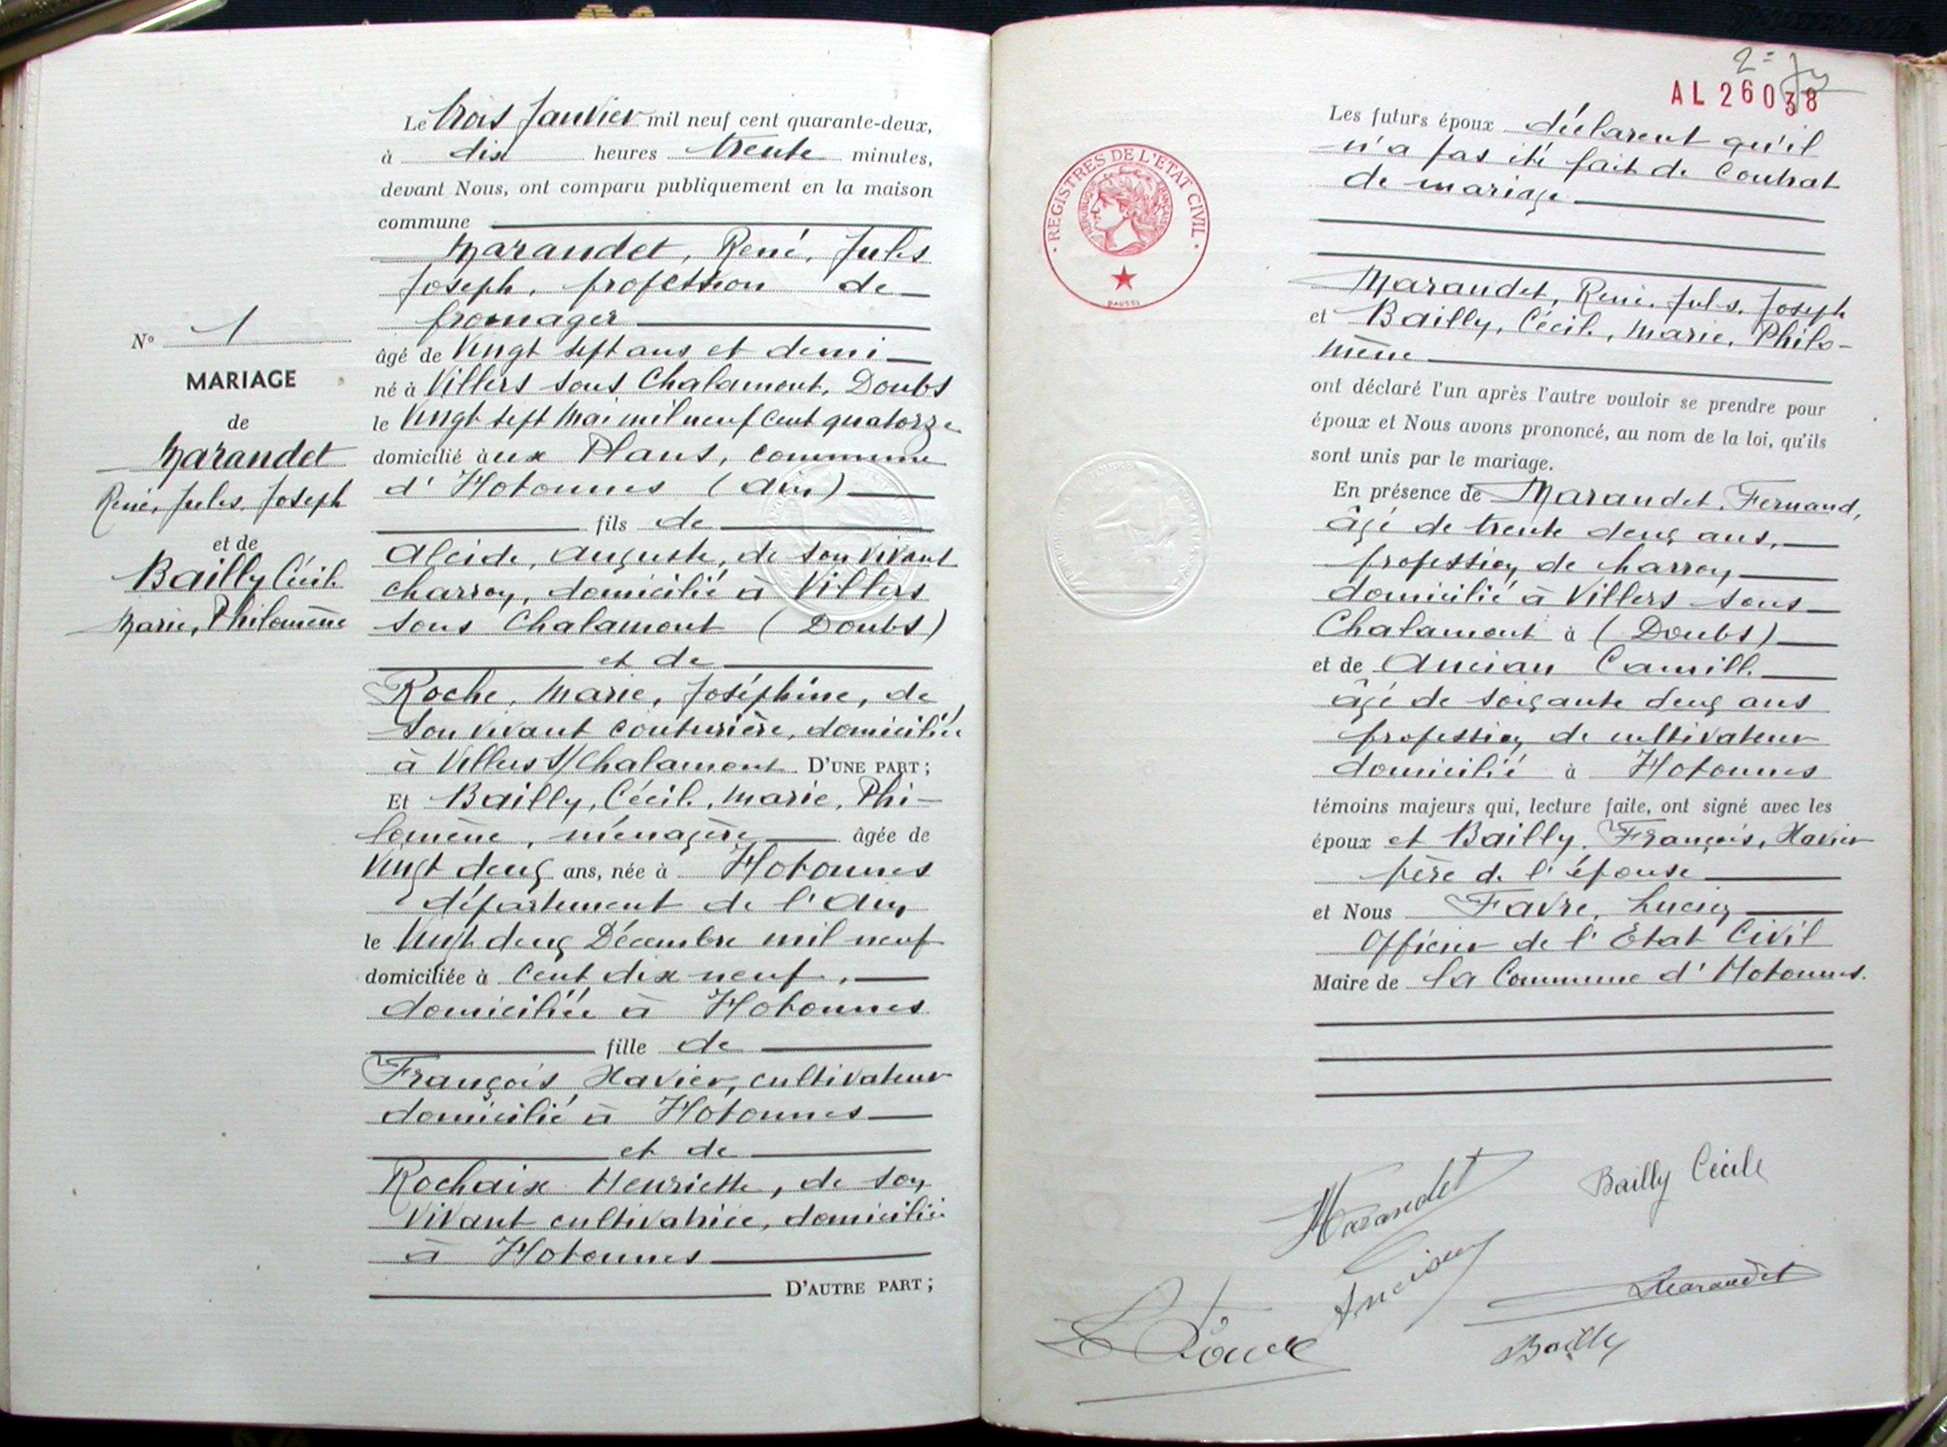 Le trois Janvier mil neuf cent quarante-deux,
à dix heures trente minutes,
devant Nous, ont comparu publiquement en la maison
commune
Marandet, René, Jules
Joseph, profession de
fromager
âgé de Vingt sept ans et demi
né à Villers sous Chalamont, Doubs
le Vingt sept Mai mil neuf cent quatorze
domicilié aux Plans, commune
d'Hotonnes (Ain)
fils de
Alcide, Auguste, de son vivant
charron, domicilié à Villers
sous Chalamont (Doubs)
et de
Roche, Marie, Joséphine, de
son vivant couturière, domiciliée
à Villers s/Chalamont D'UNE PART;
Et Bailly, Cécile, Marie, Phi-
lomène, ménagère âgée de
Vingt deux ans, née à Hotonnes
département de l'Ain
le Vingt deux Décembre mil neuf
domiciliée à cent dix neuf,
domiciliée à Hotonnes
fille de
François Xavier, cultivateur
domicilié à Hotonnes
et de
Rochaix Henriette, de son
vivant cultivatrice, domiciliée
à Hotonnes
D'AUTRE PART;
N° 1
MARIAGE
de
Marandet
René, Jules, Joseph
et de
Bailly Cécile
Marie, Philomène
2=
AL 26038
REGISTRES DE L'ETAT CIVIL
Les futurs époux déclarent qu'il
n'a pas été fait de Contrat
de mariage
Marandet, René, Jules, Joseph
et Bailly, Cécile, Marie, Philo-
mène
ont déclaré l'un après l'autre vouloir se prendre pour
époux et Nous avons prononcé, au nom de la loi, qu'ils
sont unis par le mariage.
En présence de Marandet, Fernand,
âgé de trente deux ans,
profession de charron
domicilié à Villers sous
Chalamont à (Doubs)
et de Ancian Camille
âgé de soixante deux ans
profession de cultivateur
domicilié à Hotonnes
témoins majeurs qui, lecture faite, ont signé avec les
époux et Bailly, François, Xavier
père de l'épouse
et Nous Favre, Lucien
Officier de l'Etat Civil
Maire de la Commune d'Hotonnes.
Marandet
Bailly Cécile
Ancian
Marandet
Bailly